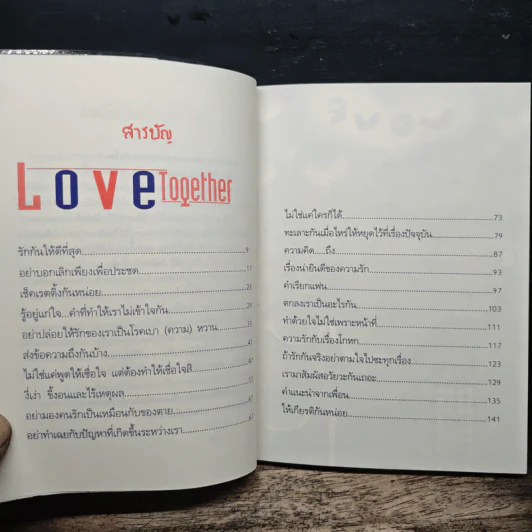 สารบัญ
Love Together
รักกันให้ดีที่สุด 9
อย่าบอกเลิกเพียงเพื่อประชด 17
เช็คเรตติ้งกันหน่อย 23
รู้อยู่แก่ใจ...คำที่ทำให้เราไม่เข้าใจกัน 29
อย่าปล่อยให้รักของเราเป็นโรคเบา (ความ) หวาน
ส่งข้อความถึงกันบ้าง
ไม่ใช่แค่พูดให้เชื่อใจ แต่ต้องทำให้เชื่อใจสิ
งี่เง่า ขี้งอนและไร้เหตุผล
อย่ามองคนรักเป็นเหมือนกับของตาย
อย่าทำเฉยกับปัญหาที่เกิดขึ้นระหว่างเรา
ไม่ใช่แค่ใครก็ได้ 73
ทะเลาะกันเมื่อไหร่ให้หยุดไว้ที่เรื่องปัจจุบัน 79
ความคิด....ถึง 87
เรื่องน่ายินดีของความรัก 93
คำเรียกแฟน 97
ตกลงเราเป็นอะไรกัน 103
ทำด้วยใจไม่ใช่เพราะหน้าที่ 111
ความรักกับเรื่องโกหก 117
ถ้ารักกันจริงอย่าตามใจไปซะทุกเรื่อง 123
เรามาสัมผัสอวัยวะกันเถอะ 129
คำแนะนำจากเพื่อน 135
ให้เกียรติกันหน่อย 141